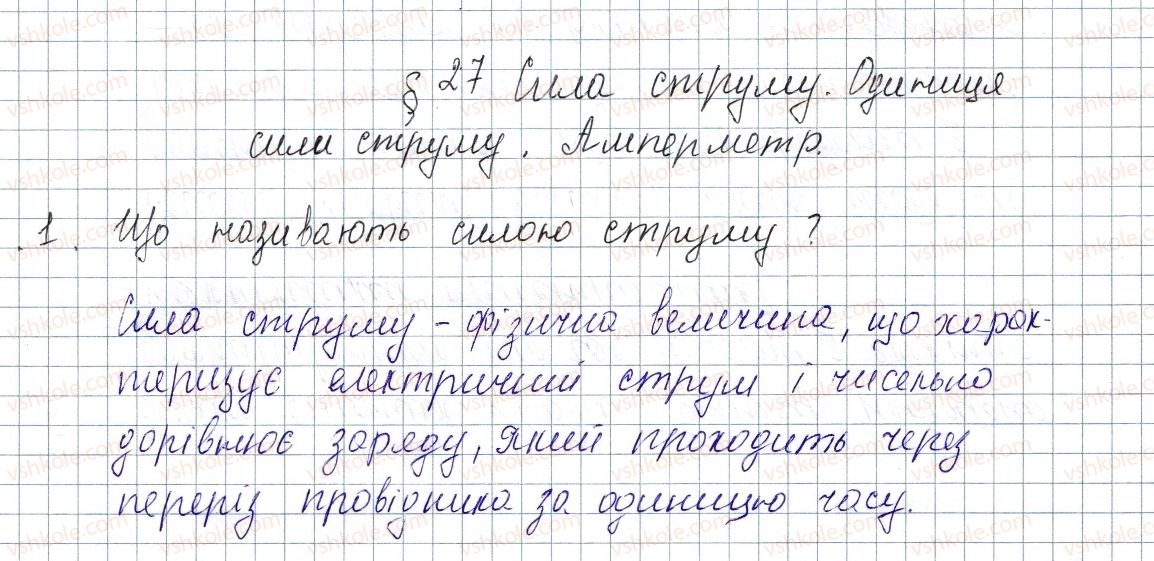 § 27 Сила струму. Одиниця
сили струму. Амперметр.
1. Що називають силою струму?
Сила струму - фізична величина, що харак-
теризує електричний струм і чисельно
дорівнює заряду, який проходить через
переріз провідника за одиницю часу.